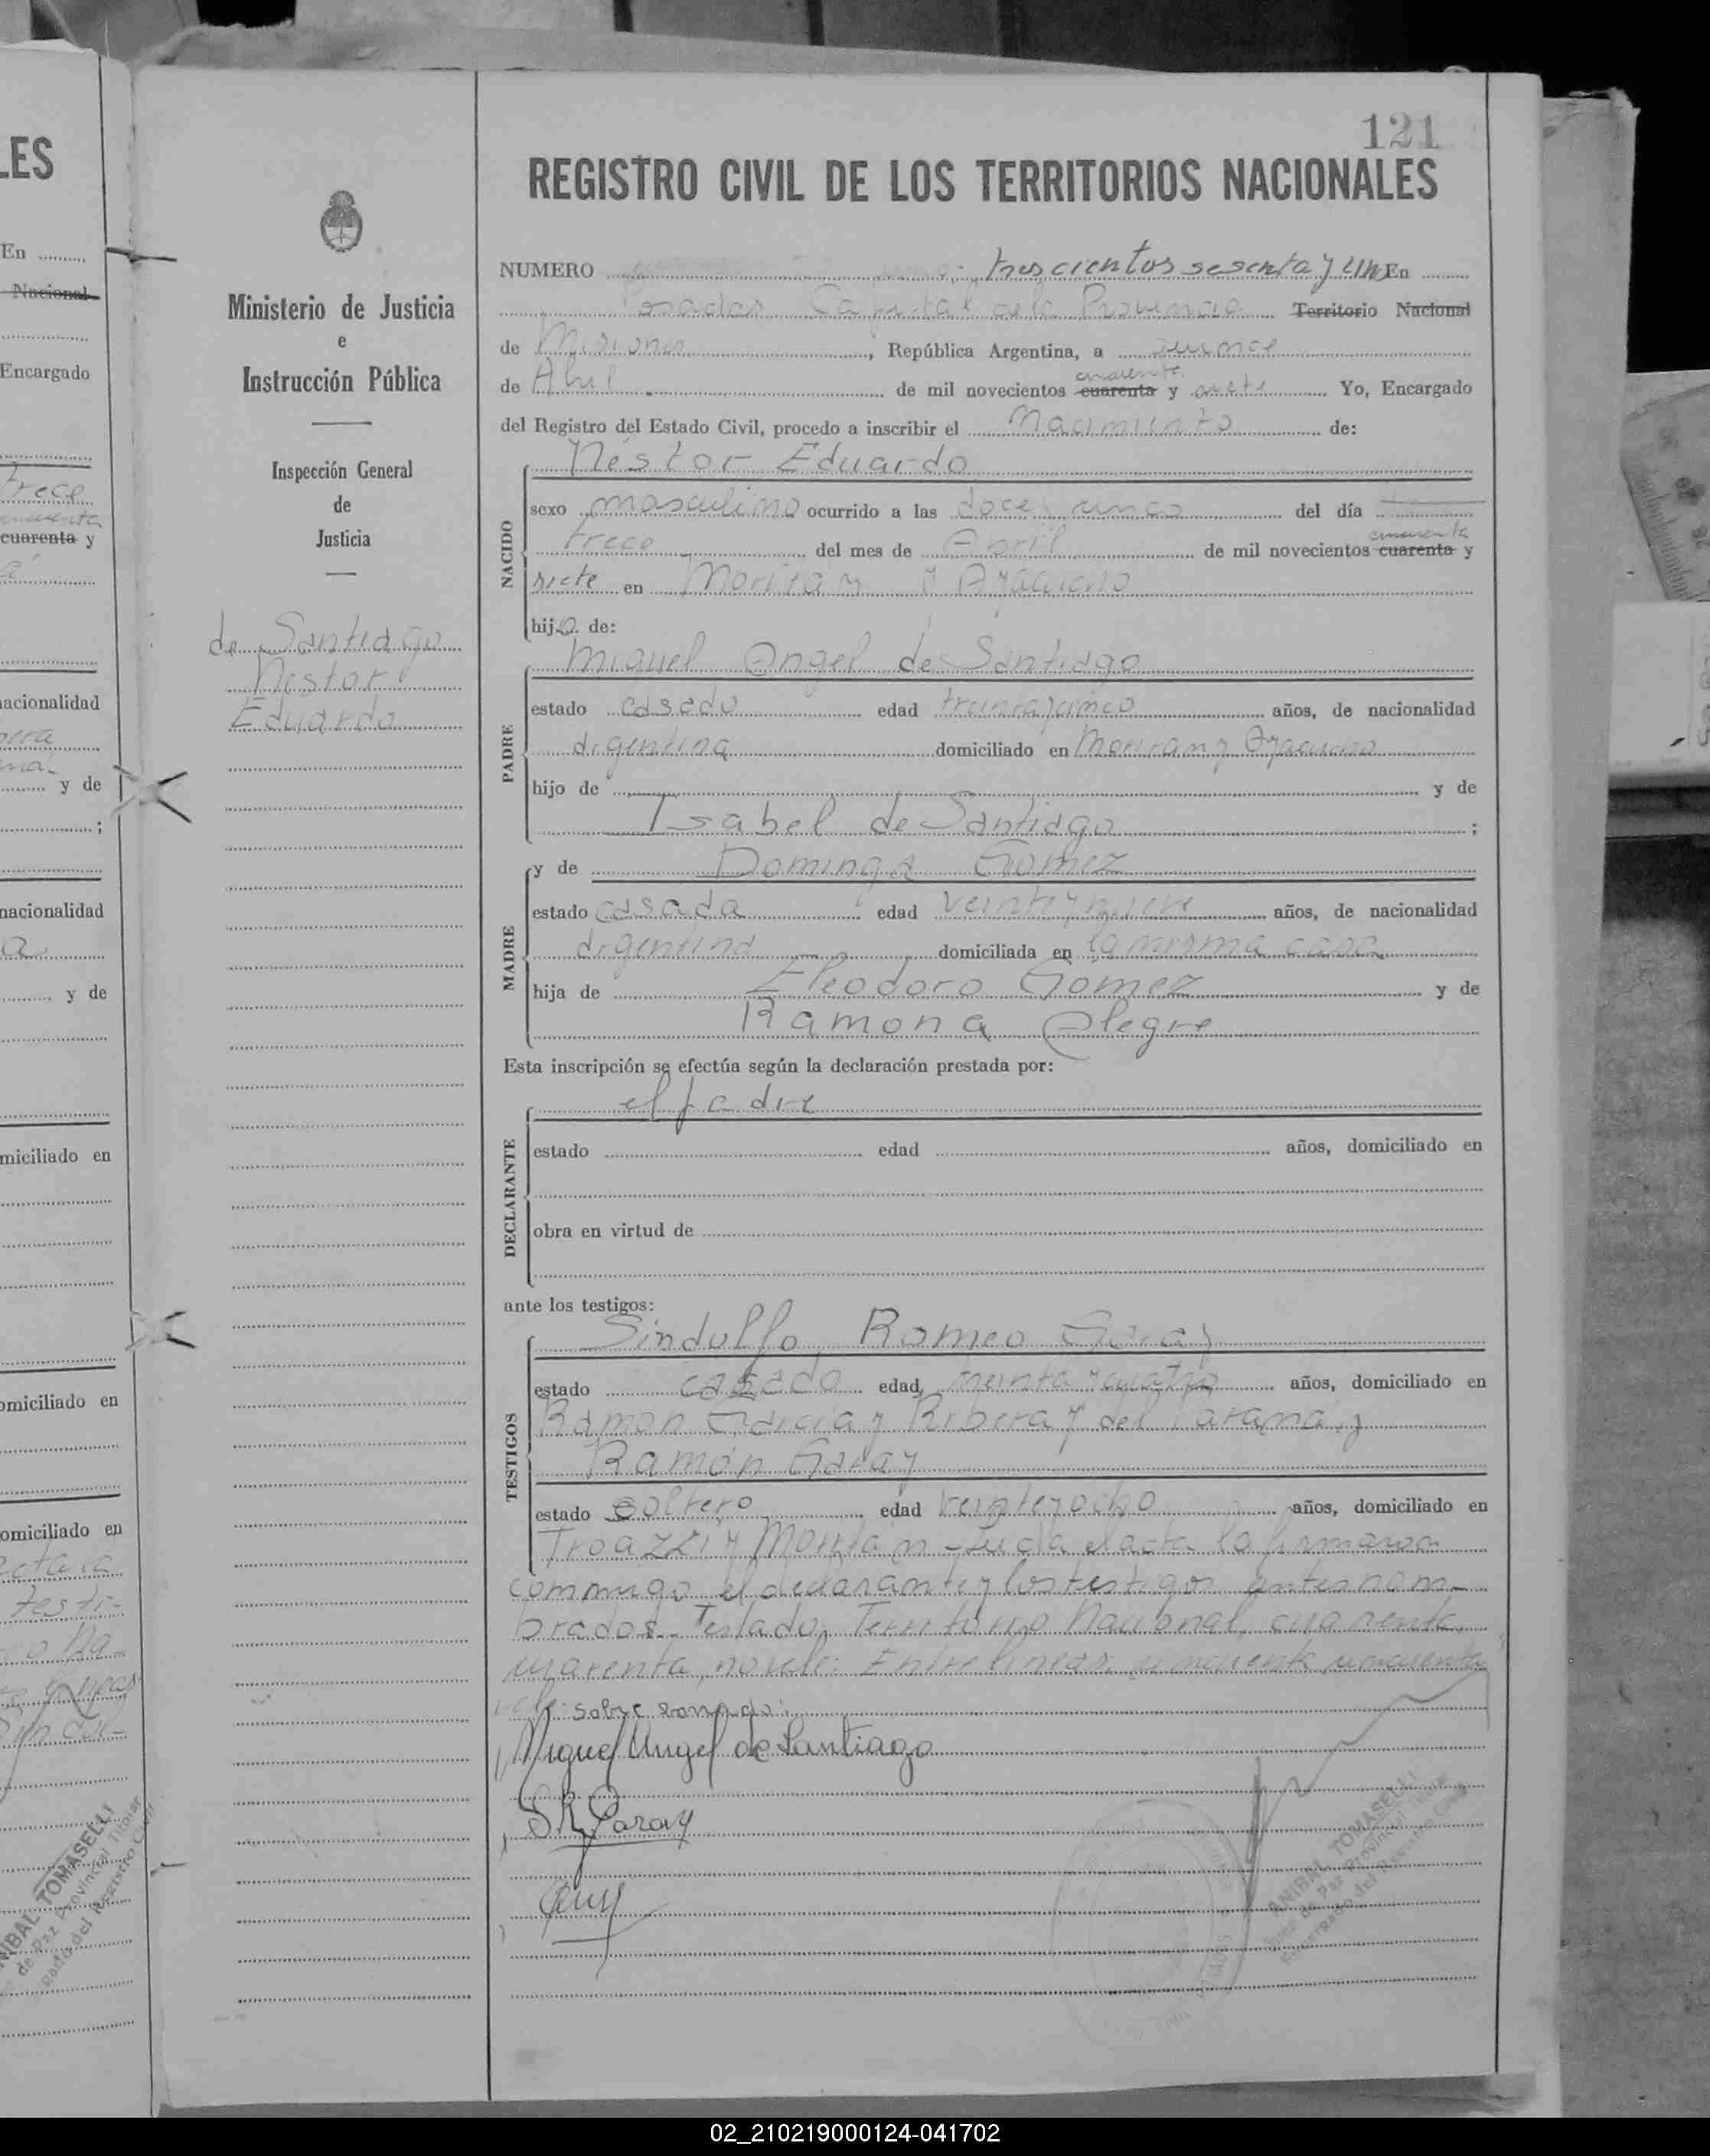 121
REGISTRO CIVIL DE LOS TERRITORIOS NACIONALES
NUMERO trescientos sesenta y uno En
Posadas Capital de la Provincia Territorio Nacional
de Misiones, República Argentina, a quince
de Abril de mil novecientos cuarenta cincuenta y siete Yo, Encargado
del Registro del Estado Civil, procedo a inscribir el Nacimiento de:
Néstor Eduardo
NACIDO
sexo masculino ocurrido a las doce cinco del día
trece del mes de Abril de mil novecientos cuarenta cincuenta y
siete en y Ayacucho
hijo de:
Miguel Angel de Santiago
PADRE
estado casado edad treinta y cinco años, de nacionalidad
argentina domiciliado en y Ayacucho
hijo de y de
Isabel de Santiago ;
y de Dominga Gomez
MADRE
estado casada edad veintinueve años, de nacionalidad
argentina domiciliada en la misma casa
hija de Eleodoro Gomez y de
Ramona Alegre
Esta inscripción se efectúa según la declaración prestada por:
el padre
DECLARANTE
estado edad años, domiciliado en
obra en virtud de
ante los testigos:
Sindulfo Romeo Garay
TESTIGOS
estado casado edad treinta y cuatro años, domiciliado en
Ramon Garcia y Ribera del Paraná, y
Ramón Garay
estado soltero edad veintiocho años, domiciliado en
y leida el acta la firmaron
conmigo el declarante y los testigos antes nom-
brados. Testado, Territorio Nacional, cuarenta,
cuarenta, no vale: Entre lineas: cincuenta cincuenta
vale: sobre
Miguel Angel de Santiago
S R Garay
ANIBAL TOMASELLI
Juez de Paz Provincial Titular
Encargado del Registro Civil
Ministerio de Justicia
e
Instrucción Pública
Inspección General
de
Justicia
de Santiago
Nestor
Eduardo
LES
En
Nacional
Encargado
trece
cincuenta
cuarenta y
nacionalidad
y de
;
nacionalidad
y de
miciliado en
omiciliado en
omiciliado en
testi-
ANIBAL TOMASELLI
de Paz Provincial Titular
gado del Registro Civil
02_210219000124-041702